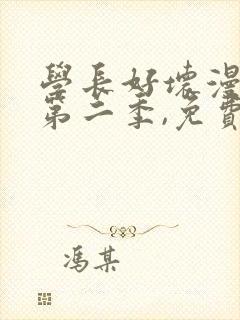 學長好壞漫
第二季,免費
馮某